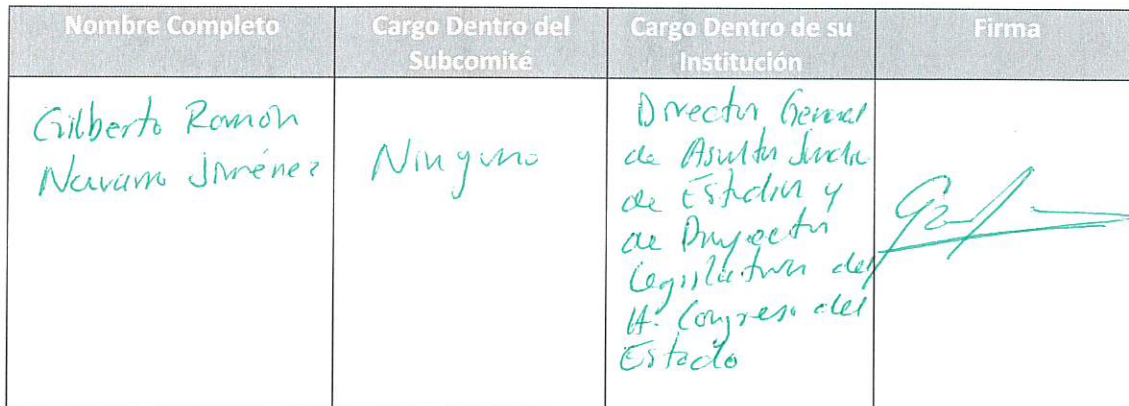 Nombre Completo
Cargo Dentro del
Subcomité
Cargo Dentro de su
Institución
Firma
Gilberto Ramón
Navarro Jiménez
Ninguno
Director General
de Asuntos
de Estudios y
de Proyectos
Legislativos del
H. Congreso del
Estado